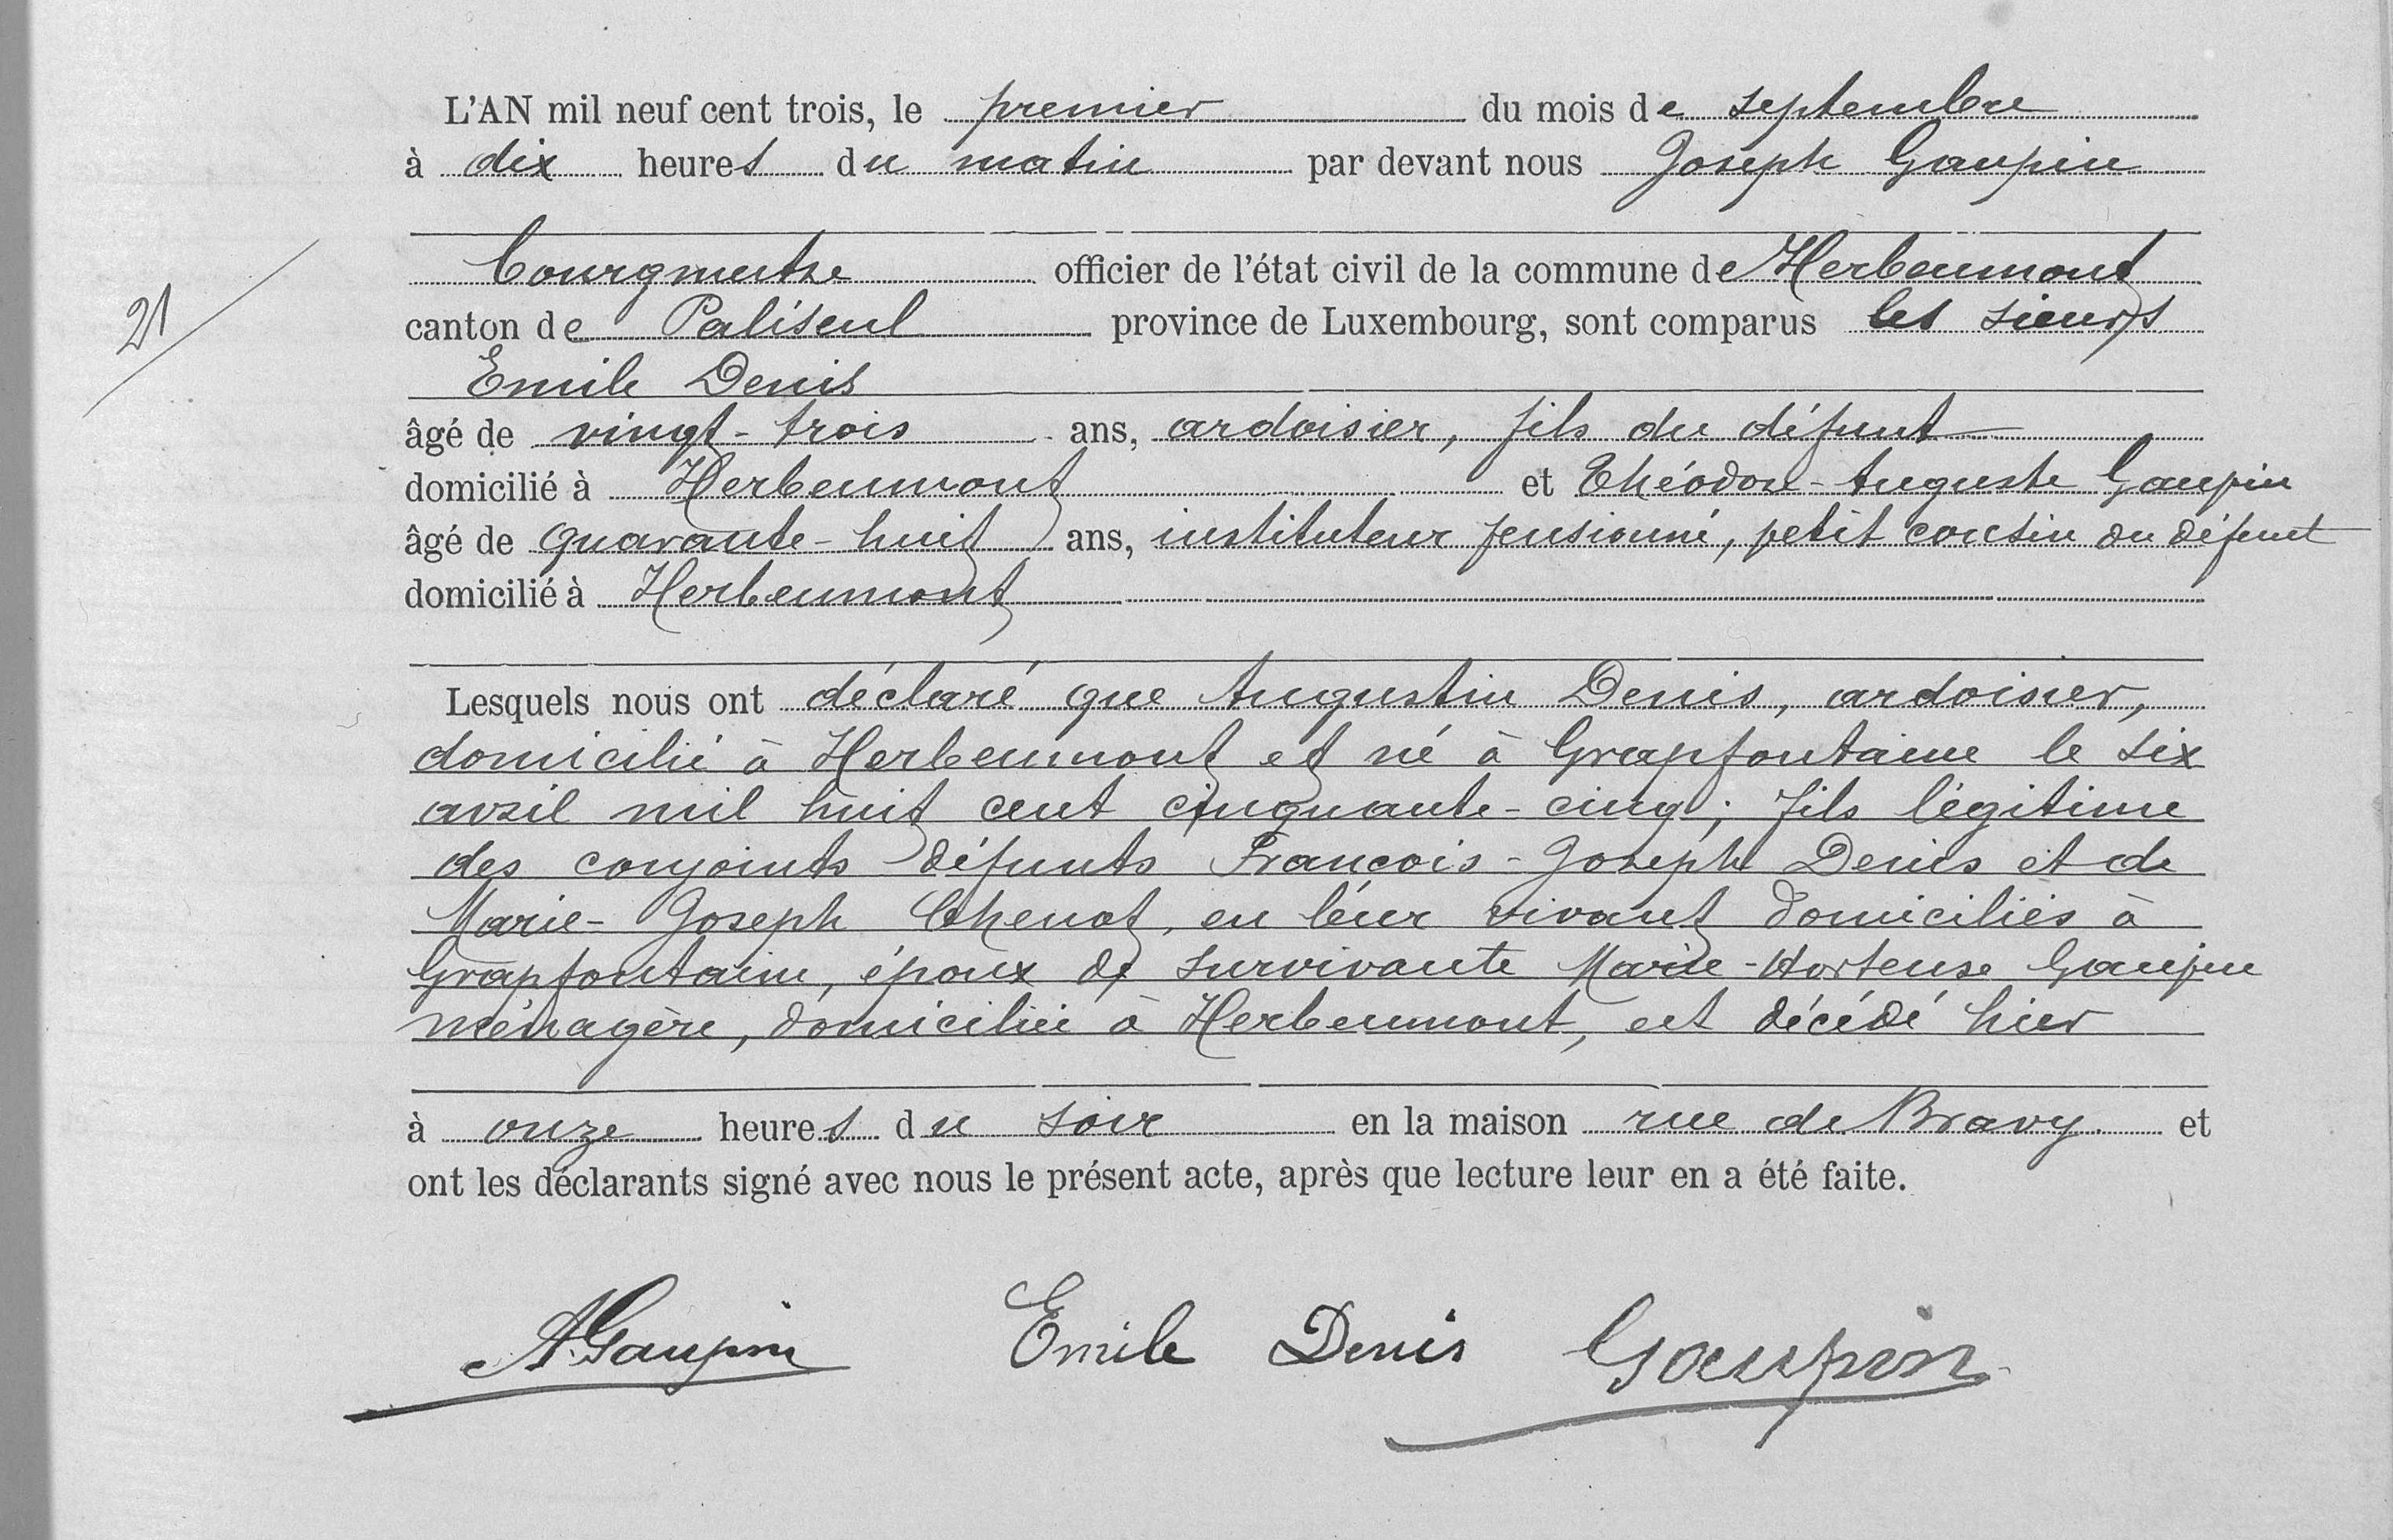 L'AN mil neuf cent trois, le premier du mois de septembre
à dix heures du matin par devant nous Joseph Gaupin
bourgmestre officier de l'état civil de la commune de Herbeumont
21
canton de Paliseul province de Luxembourg, sont comparus les sieurs
Emile Denis
âgé de vingt-trois ans, ardoisier, fils du défunt
domicilié à Herbeumont et Théodore-Auguste Gaupin
âgé de quarante-huit ans, instituteur pensionné, petit cousin du défunt
domicilié à Herbeumont
Lesquels nous ont déclaré que Augustin Denis, ardoisier,
domicilié à Herbeumont et né à Grapfontaine le six
avril mil huit cent cinquante-cinq; fils légitime
des conjoints défunts François-Joseph Denis et de
Marie-Joseph Thenot, en leur vivant domiciliés à
Grapfontaine, époux de survivante Marie-Hortense Gaupin
ménagère, domiciliée à Herbeumont, est décédé hier
à onze heures du soir en la maison rue de Bravy et
ont les déclarants signé avec nous le présent acte, après que lecture leur en a été faite.
A. Gaupin Emile Denis Gaupin